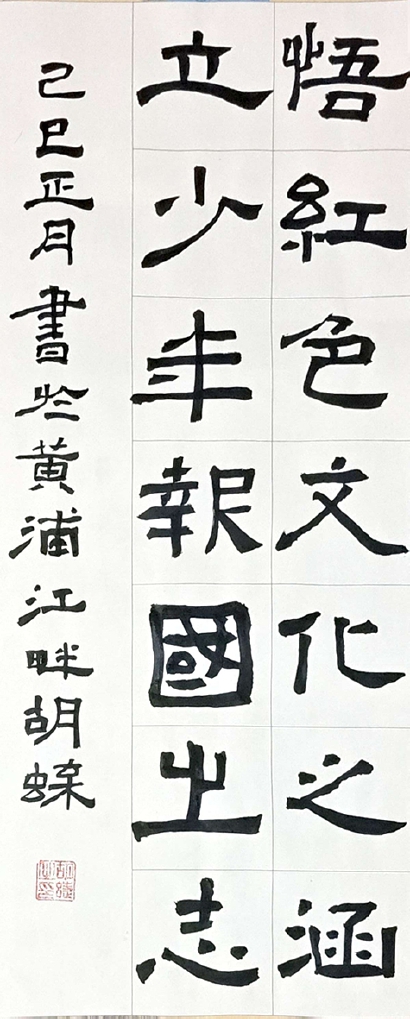 悟紅色文化之涵
立少年報國之志
己巳正月書於黃浦江畔胡蝶